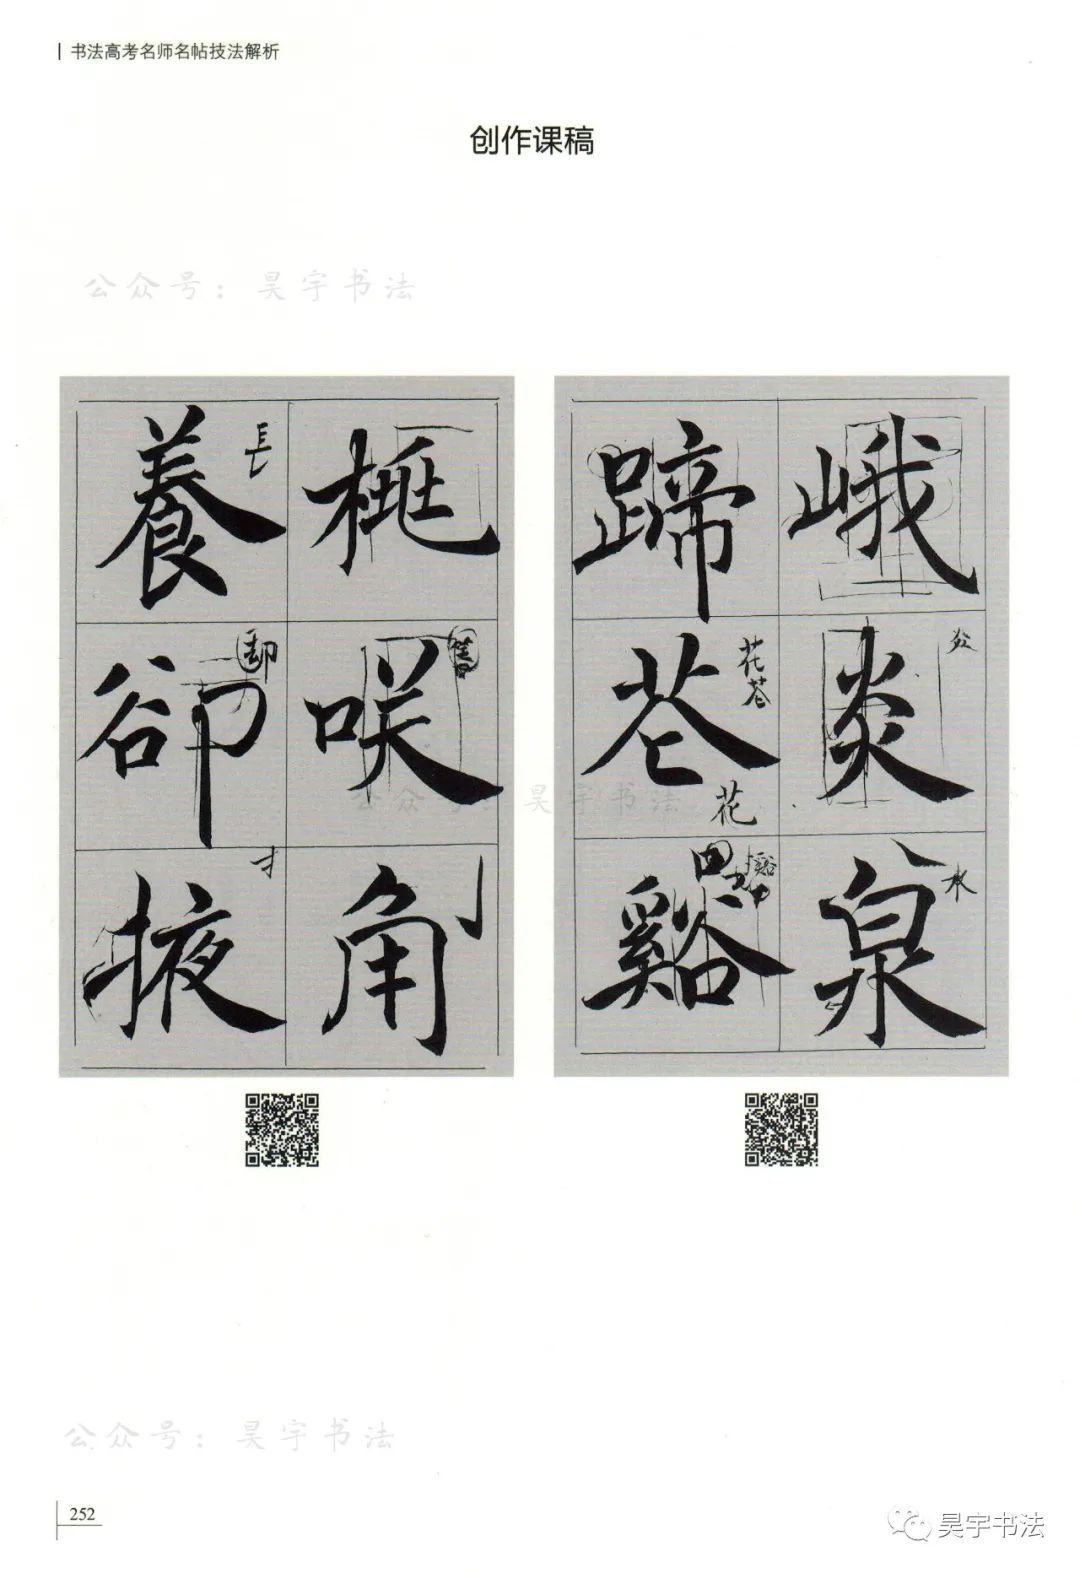 书法高考名师名帖技法解析
创作课稿
公众号：昊宇书法
咲角
養卻掖
長
才
峨炎泉
蹄苍谿
花苍
花
水
公众号：昊宇书法
公众号：昊宇书法
252
昊宇书法